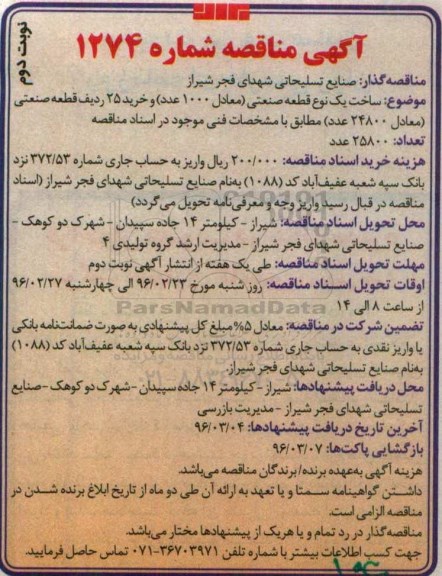 نوبت دوم
آگهی مناقصه شماره ۱۲۷۴
مناقصه‌گذار: صنایع تسلیحاتی شهدای فجر شیراز
موضوع: ساخت یک نوع قطعه صنعتی (معادل ۱۰۰۰ عدد) و خرید ۲۵ ردیف قطعه صنعتی
(معادل ۲۴۸۰۰ عدد) مطابق با مشخصات فنی موجود در اسناد مناقصه
تعداد: ۲۵۸۰۰ عدد
هزینه خرید اسناد مناقصه: ۲۰۰/۰۰۰ ریال واریز به حساب جاری شماره ۳۷۲/۵۳ نزد
بانک سپه شعبه عفیف‌آباد کد (۱۰۸۸) به‌نام صنایع تسلیحاتی شهدای فجر شیراز (اسناد
مناقصه در قبال رسید واریز وجه و معرفی‌نامه تحویل می‌گردد)
محل تحویل اسناد مناقصه: شیراز - کیلومتر ۱۴ جاده سپیدان - شهرک دو کوهک -
صنایع تسلیحاتی شهدای فجر شیراز - مدیریت ارشد گروه تولیدی ۴
مهلت تحویل اسناد مناقصه: طی یک هفته از انتشار آگهی نوبت دوم
اوقات تحویل اسناد مناقصه: روز شنبه مورخ ۹۶/۰۲/۲۳ الی چهارشنبه ۹۶/۰۲/۲۷
از ساعت ۸ الی ۱۴
ParsNamadData
تضمین شرکت در مناقصه: معادل ۵% مبلغ کل پیشنهادی به صورت ضمانت‌نامه بانکی
یا واریز نقدی به حساب جاری شماره ۳۷۲/۵۳ نزد بانک سپه شعبه عفیف‌آباد کد (۱۰۸۸)
به‌نام صنایع تسلیحاتی شهدای فجر شیراز.
محل دریافت پیشنهادها: شیراز - کیلومتر ۱۴ جاده سپیدان - شهرک دو کوهک - صنایع
تسلیحاتی شهدای فجر شیراز - مدیریت بازرسی
آخرین تاریخ دریافت پیشنهادها: ۹۶/۰۳/۰۴
بازگشایی پاکت‌ها: ۹۶/۰۳/۰۷
هزینه آگهی به‌عهده برنده/برندگان مناقصه می‌باشد.
داشتن گواهینامه سمتا و یا تعهد به ارائه آن طی دو ماه از تاریخ ابلاغ برنده شدن در
مناقصه الزامی است.
مناقصه‌گذار در رد تمام و یا هریک از پیشنهادها مختار می‌باشد.
جهت کسب اطلاعات بیشتر با شماره تلفن ۳۶۷۰۳۹۷۱-۰۷۱ تماس حاصل فرمایید.